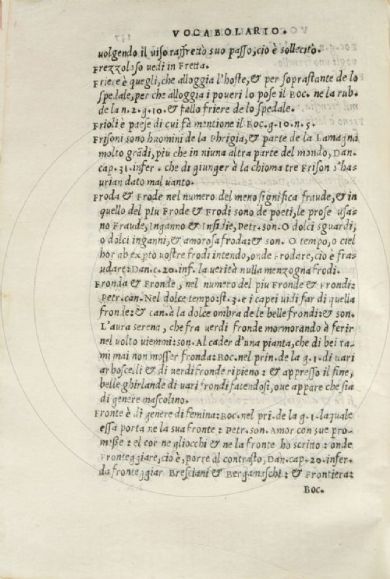 VOCABOLARIO.
volgendo il viso raffretò suo passo, cio è sollecitò.
Frezzoloso vedi in Fretta.
Friere è quegli, che alloggia l'hoste, & per soprastante de lo
spedale, per che alloggia i poveri lo pose il Boc. ne la rub.
de la n. 2. g. 10 & fallo friere de lo spedale.
Frioli è paese di cui fà mentione il Boc. g. 10. n. 5.
Frisoni sono huomini de la Phrigia, & parte de la Lamagna
molto grãdi, piu che in niuna altra parte del mondo, Dan.
cap. 31. infer. che di giunger à la chioma tre Frison s'ha-
urian dato mal vanto.
Froda & Frode nel numero del meno significa fraude, & in
quello del piu Frode & Frodi sono de poeti, le prose usa-
no Fraude, Inganno & Insidie, Petr. son. O dolci sguardi,
o dolci inganni, & amorosa froda: & son. O tempo, o ciel
hor ab expto nostre frodi intendo, onde Frodare, cio è fra-
udare: Dan. c. 20. inf. la verità nulla menzogna frodi.
Fronda & Fronde, nel numero del piu Fronde & Frondi:
Petr. can. Nel dolce tempo: st. 3. e i capei vidi far di quella
fronde: & can. à la dolce ombra de le belle frondi: & son.
L'aura serena, che fra verdi fronde mormorando à ferir
nel volto viemmi: son. Al cader d'una pianta, che di bei ra
mi mai non mosser fronda: Boc. nel prin. de la g. 1. di vari
arboscelli & di verdi fronde ripieno: & appresso il fine,
belle ghirlande di vari frondi facendosi, ove appare che sia
di genere mascolino.
Fronte è di genere di femina: Boc. nel pri. de la g. 1. laquale
essa porta ne la sua fronte: Petr. son. Amor con sue pro-
messe: e il cor ne gliocchi & ne la fronte ho scritto: onde
Fronteggiare, cio è, porre al contrasto, Dan. cap. 20. infer.
da fronteggiar Bresciani & Bergamaschi: & Frontiera:
Boc.